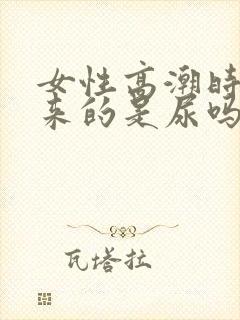 女性高潮时
来的是尿吗
瓦塔拉